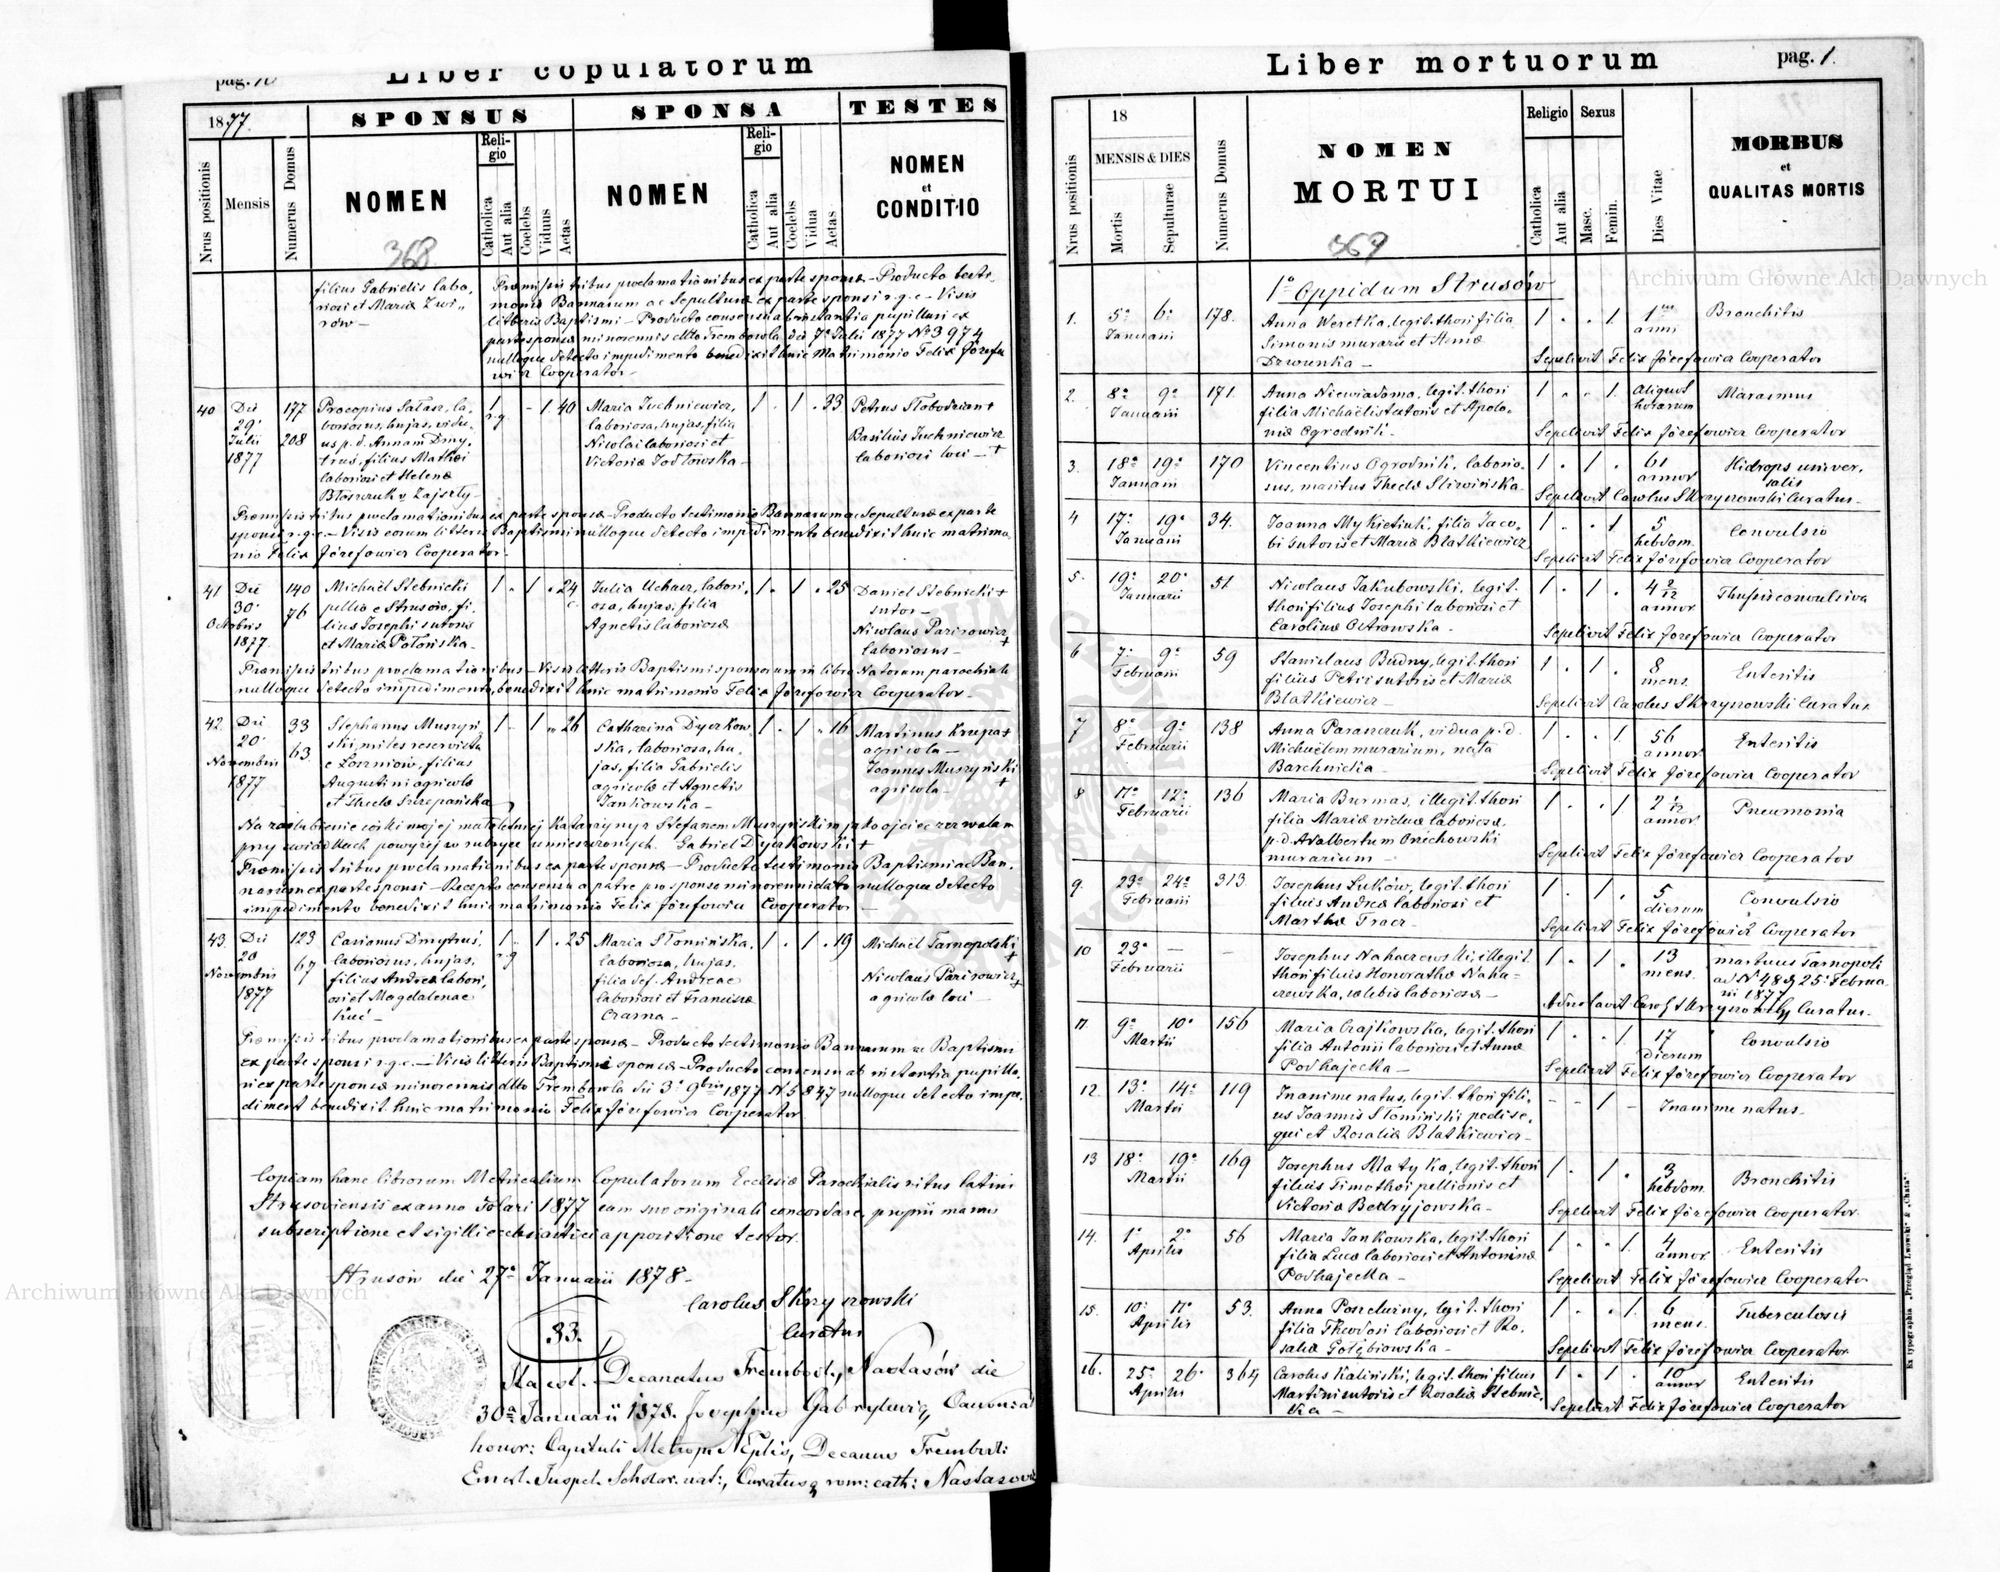 pag. 10
Liber copulatorum
1877.
SPONSUS
SPONSA
TESTES
Nrus positionis
Mensis
Numerus Domus
NOMEN
Religio
Catholica
Aut alia
Coelebs
Viduus
Aetas
NOMEN
Religio
Catholica
Aut alia
Coelebs
Vidua
Aetas
NOMEN
et
CONDITIO
368
filius Gabrielis labo-
riosi et Mariæ Zwi-
rów —
Præmissis tribus proclamationibus ex parte sponsæ — Producto testi-
monio Bannorum ac Sepulturæ ex parte sponsi r. g. c. — Visis
litteris Baptismi — Producto consensu ab instantia pupillari ex
parte sponsæ minorennis dtto Trembowla die 7ª Julii 1877 N° 3974
nulloque detecto impedimento benedixit huic Matrimonio Felix Józefo-
wicz Cooperator —
40
Die
29ª
Julii
1877
177
208
Procopius Sałasz, la-
boriosus, hujas, vidu-
us p. d. Annam Dmy-
trus, filius Mathei
laboriosi et Helenæ
1 r.g. - 1. 40
Maria Juchniewicz,
laboriosa, hujas, filia
Nicolai laboriosi et
Victoriæ Jodłowska —
1 . 1 . 33
Petrus Słobodzian +
Basilius Juchniewicz
laboriosi loci — +
Præmissis tribus proclamationibus ex parte sponsæ — Producto testimonio Bannorum ac Sepulturæ ex parte
sponsi r. g. c. — Visis eorum litteris Baptismi nulloque detecto impedimento benedixit huic matrimo-
nio Felix Józefowicz Cooperator —
41
Die
30ª
Octobris
1877.
140
76
Michaël Stebnicki
pellio e Strusów, fi-
lius Josephi sutoris
et Mariæ Potońska —
1 . 1 . 24
Julia Uchacz, labori-
osa, hujas, filia
Agnetis laboriosæ
1 . 1 . 25
Daniel Stebnicki +
sutor —
Nicolaus Parisowicz +
laboriosus —
Præmissis tribus proclamationibus — Visis litteris Baptismi sponsorum in libro Natorum parochiali
nulloque detecto impedimento, benedixit huic matrimonio Felix Józefowicz Cooperator —
42.
Die
20ª
Novembris
1877
33
63.
Stephanus Muszyń-
ski, miles reservista
e Łoszniów, filius
Augustini agricolæ
et Theclæ Szczepańska
1 - 1 . 26
Catharina Dyczkow-
ska, laboriosa, hu-
jas, filia Gabrielis
agricolæ et Agnetis
Jankowska —
1 . 1 . 16
Martinus Krzepa +
agricola —
Joannes Muszyński +
agricola —
Na zaślubienie córki mojej małoletniej Katarzyny z Stefanem Muszyńskim jako ojciec zezwalam
przy świadkach powyżej w rubryce umieszczonych. Gabriel Dyczkowski +
Præmissis tribus proclamationibus ex parte sponsæ — Producto testimonio Baptismi ac Ban-
norum ex parte sponsi — Recepto consensu a patre pro sponsa minorenni dato nulloque detecto
impedimento benedixit huic matrimonio Felix Józefowicz Cooperator —
43.
Die
20
Novembris
1877
123
67
Casianus Dmytruś,
laboriosus, hujas,
filius Andreæ labori-
osi et Magdalenae
Kuć —
1 r.g . 1 . 25
Maria Słomińska,
laboriosa, hujas,
filia def. Andreae
laboriosi et Franciscæ
Czarna —
1 . 1 . 19
Michaël Tarnopolski +
Nicolaus Parisowicz +
agricolæ loci —
Præmissis tribus proclamationibus ex parte sponsæ — Producto testimonio Bannorum ac Baptismi
ex parte sponsi r. g. c. — Visis litteris Baptismi sponsæ — Producto consensu ab instantia pupilla-
ri ex parte sponsæ minorennis dtto Trembowla die 3ª 9bris 1877 N 5847 nulloque detecto impe-
diment benedixit huic matrimonio Felix Józefowicz Cooperator
Copiam hanc librorum Metricalium Copulatorum Ecclesiæ Parochialis ritus latini
Strusoviensis ex anno solari 1877 cum suo originali concordare, proprii manus
subscriptione et sigilli ecclesiastici appositione testor.
Strusów die 27ª Januarii 1878 —
Carolus Skrzyszowski
Curatus
33.
Sta est. Decanatus Trembowl, Nastasów die
30ª Januarii 1878. Josephus Gabryelowicz, Canonicus
honor: Capituli Metrop: Leoplis, Decanus Trembowl:
Emer. Inspect. Scholar. nat:, Curatus rom: cath: Nastasov
Liber mortuorum
pag. 1.
Nrus positionis
18
MENSIS & DIES
Mortis
Sepulturae
Numerus Domus
NOMEN
MORTUI
Religio
Catholica
Aut alia
Sexus
Masc.
Femin.
Dies Vitae
MORBUS
et
QUALITAS MORTIS
369
1° Oppidum Strusów
1. 5ª 6ª Januarii 178.
Anna Weretka, legit. thori filia
Simonis murarii et Annæ
Dzwonka —
1 . . 1. 1 anni Bronchitis
Sepelivit Felix Józefowicz Cooperator
2. 8ª 9ª Januarii 171.
Anna Niewiadoma, legit. thori
filia Michaëlis sutoris et Apolo-
niæ Ogrodnik —
1 . . 1. aliquot horarum Marasmus
Sepelivit Felix Józefowicz Cooperator
3. 18ª 19ª Januarii 170
Vincentius Ogrodnik, laborio-
sus, maritus Theclæ Sliwińska —
1 . 1 . 61 annor Hidrops univer-
salis
Sepelivit Carolus Skrzyszowski Curatus —
4 17ª 19ª Januarii 34.
Joanna Mykietiuk, filia Jaco-
bi sutoris et Mariæ Blatkiewicz
1 . . 1 5 hebdom. Convulsio
Sepelivit Felix Józefowicz Cooperator
5. 19ª 20ª Januarii 51
Nicolaus Jakubowski, legit.
thori filius Josephi laboriosi et
Carolinæ Ostrowska —
1 . 1 . 4 2/12 annor Thussis convulsiva
Sepelivit Felix Józefowicz Cooperator
6 7ª 9ª Februarii 59
Stanislaus Budny, legit. thori
filius Petri sutoris et Mariæ
Blatkiewicz —
1 . 1 . 8 mens. Enteritis
Sepelivit Carolus Skrzyszowski Curatus
7 8ª 9ª Februarii 138
Anna Paraszczuk, vidua p. d.
Michaëlem murarium, nata
Barchnicka —
1 . . 1. 56 annor Enteritis
Sepelivit Felix Józefowicz Cooperator
8 11ª 12ª Februarii 136
Maria Burmas, illegit. thori
filia Mariæ viduæ laboriosæ,
p. d. Adalbertum Orzechowski
murarium —
1 . . 1 2 1/12 annor Pneumonia
Sepelivit Felix Józefowicz Cooperator
9. 23ª 24ª Februarii 313.
Josephus Łuków, legit. thori
filius Andreæ laboriosi et
Marthæ Tracz —
1 . 1 . 5 dierum Convulsio
Sepelivit Felix Józefowicz Cooperator
10 23ª — Februarii —
Josephus Nakaczewski, illegit.
thori filius Honorathæ Naka-
czewska, cœlebis laboriosæ —
1 . 1 . 13 mens. mortuus Tarnopoli
ad N° 48 d 25ª Februa-
rii 1877
Adnotavit Carol Skrzyszowski Curatus —
11. 9ª 10ª Martii 156
Maria Czajkowska, legit. thori
filia Antonii laboriosi et Annæ
Podhajecka —
1 . . 1. 17 dierum Convulsio
Sepelivit Felix Józefowicz Cooperator
12. 13ª 14ª Martii 119
Inanime natus, legit. thori fili-
us Joannis Słomiński pedise-
qui et Rosaliæ Blatkiewicz —
- - 1 - Inanime natus —
13 18ª 19ª Martii 169
Josephus Matyka, legit. thori
filius Timothei pellionis et
Victoriæ Bedryjowska —
1 . 1 . 3 hebdom. Bronchitis
Sepelivit Felix Józefowicz Cooperator
14. 1ª 2ª Aprilis 56
Maria Jankowska, legit. thori
filia Lucæ laboriosi et Antoninæ
Podhajecka —
1 . . 1. 4 annor Enteritis
Sepelivit Felix Józefowicz Cooperator
15. 10ª 11ª Aprilis 53.
Anna Poszelużny, legit. thori
filia Theodosi laboriosi et Ro-
saliæ Gołębiowska —
1 . . 1. 6 mens. Tuberculosis
Sepelivit Felix Józefowicz Cooperator
16. 25ª 26ª Aprilis 364
Carolus Kaliński, legit. thori filius
Martini sutoris et Rosaliæ Stebnic-
ka —
1 . 1 . 10 annor Enteritis
Sepelivit Felix Józefowicz Cooperator
Ex typographia „Przegląd Lwowski" & „Chata".
Archiwum Główne Akt Dawnych
Archiwum Główne Akt Dawnych